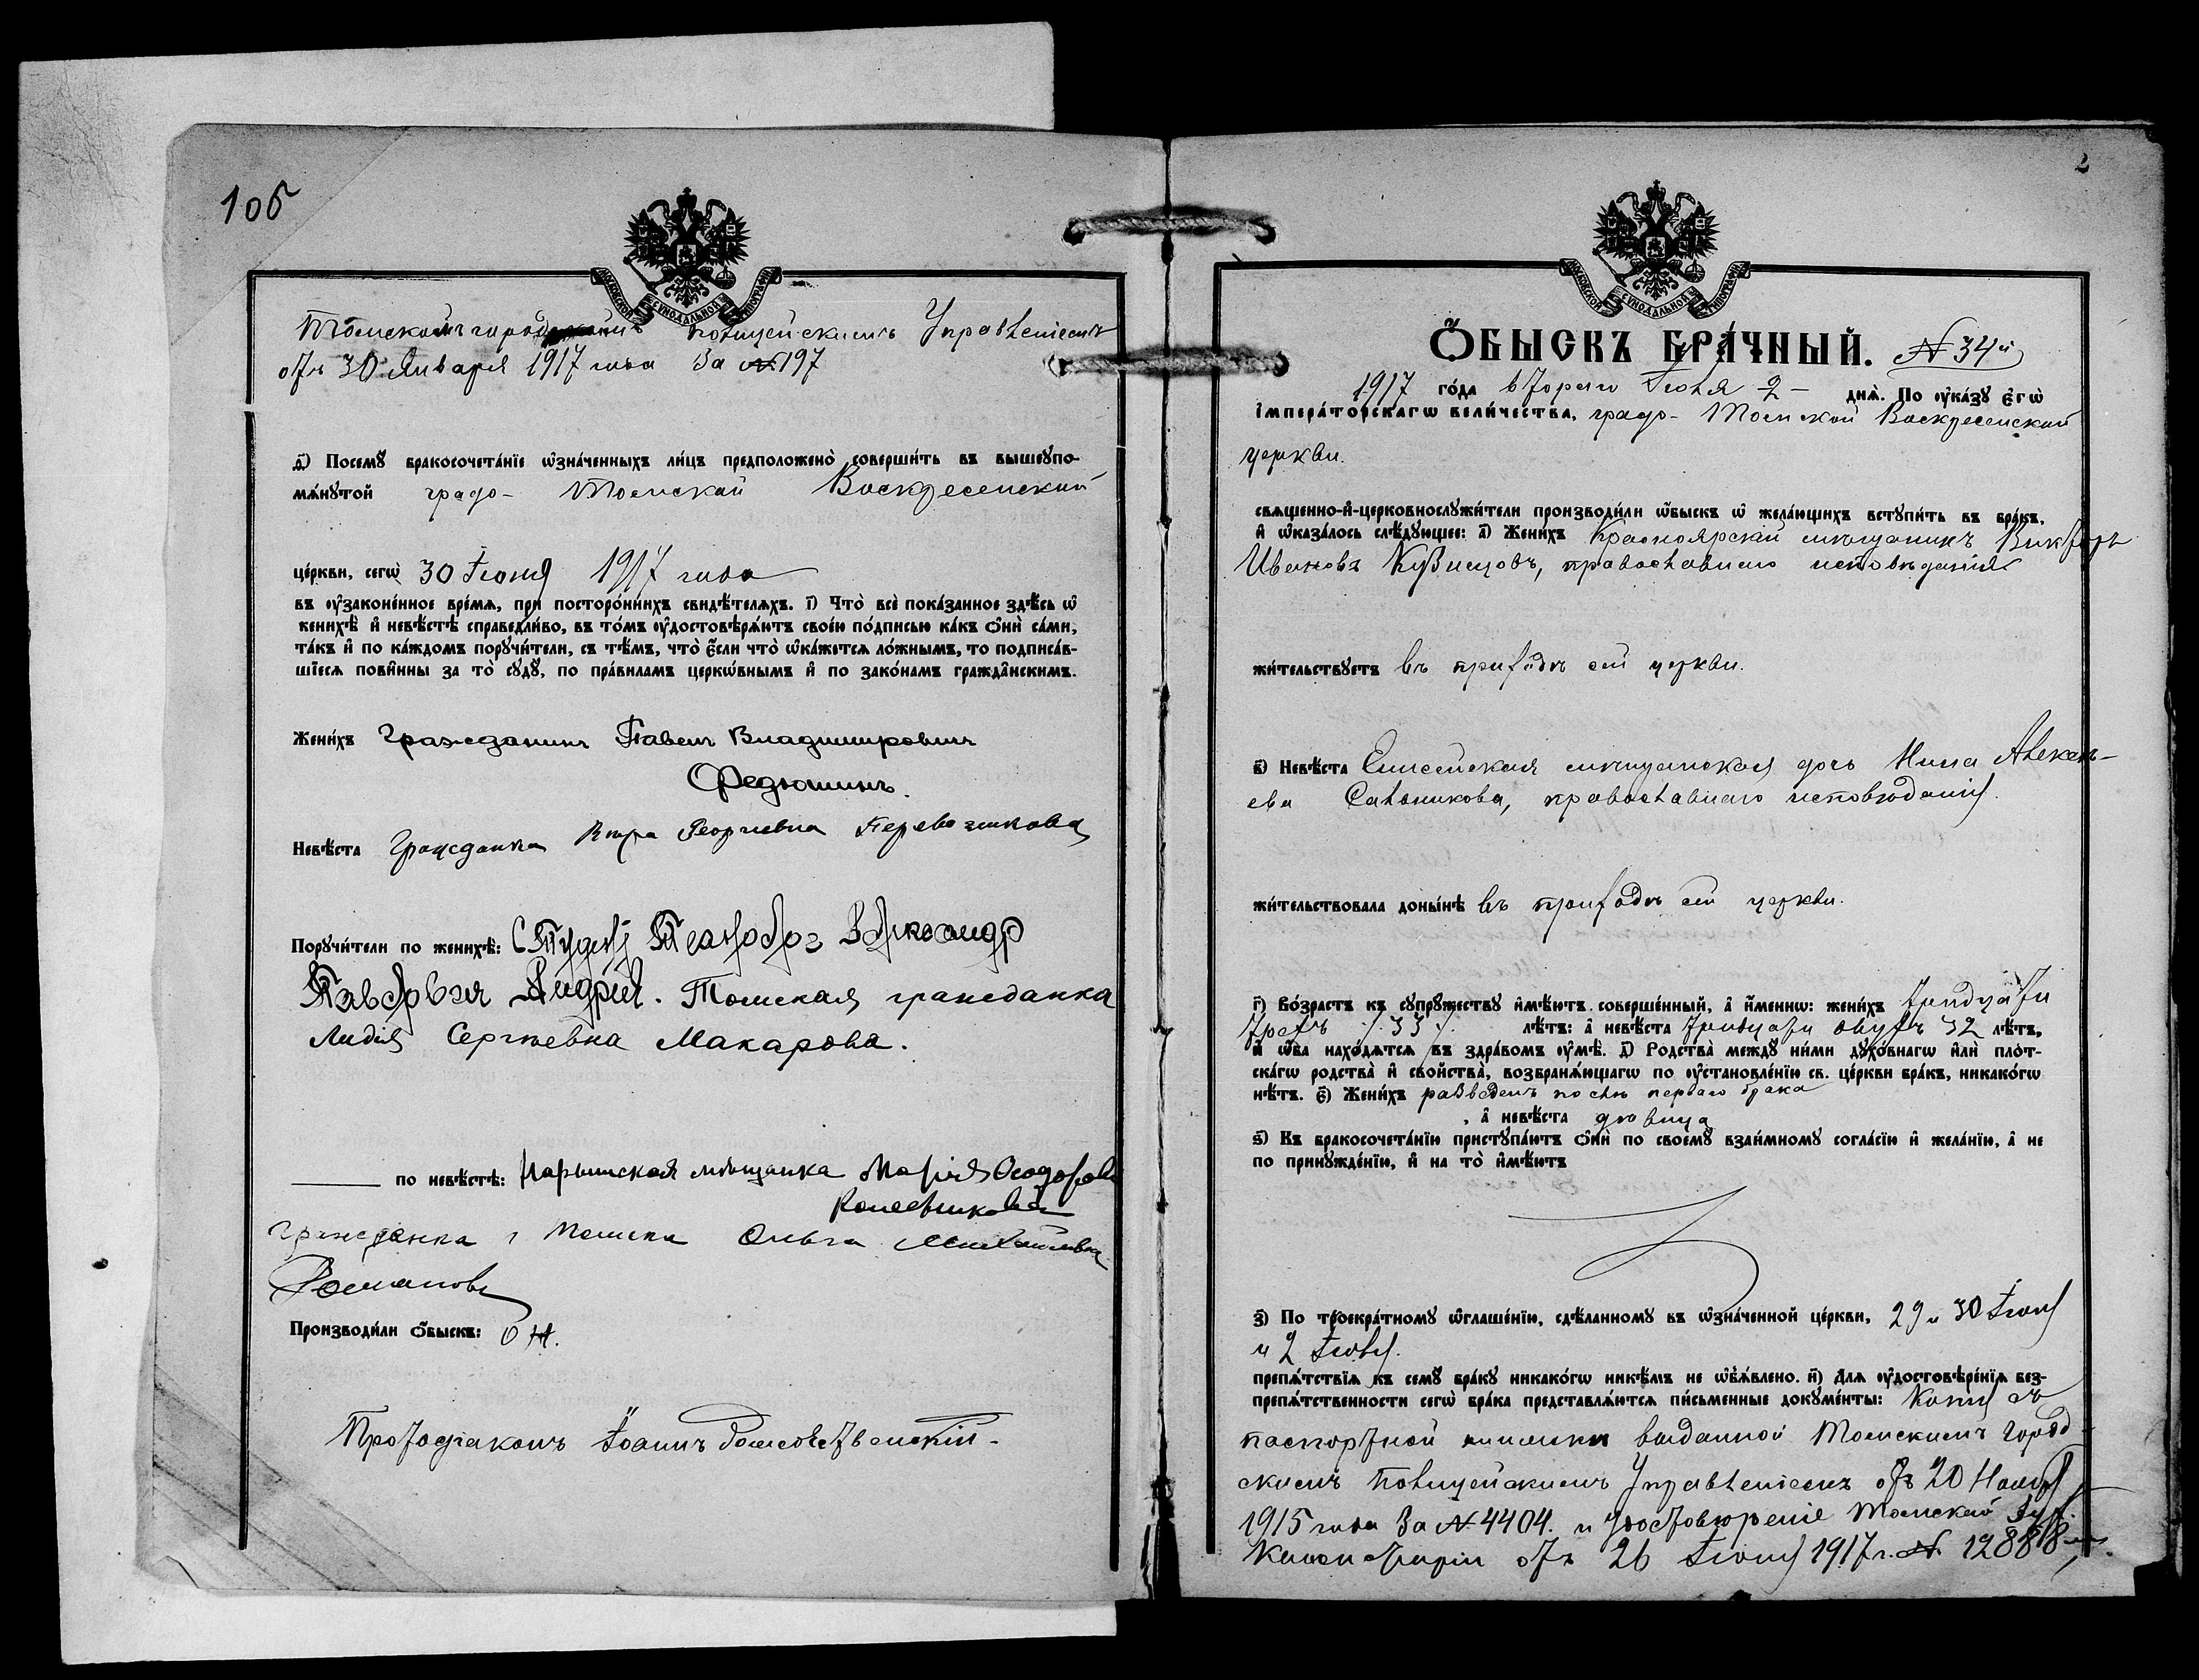 105
МОСКОВСКОЙ СѴНОДАЛЬНОЙ ТИПОГРАФІИ
Томскимъ город полицейскимъ Управленіемъ
отъ 30 Января 1917 года За № 197
д҃) Посемꙋ бракосочета́нїе ѡ҆зна́ченныхъ ли́цъ предположено̀ соверши́ть въ вышеꙋпо-
мѧ́нꙋтой градо- Томской Воскресенской
це́ркви, сегѡ̀ 30 Іюня 1917 года
въ ᲂу҆законе́нное вре́мѧ, при посторо́ннихъ свидѣ́телѧхъ. і҃) Что̀ всѐ пока́занное здѣ́сь ѡ҆
женихѣ̀ и҆ невѣ́стѣ справедли́во, въ то́мъ ᲂу҆достовѣрѧ́ютъ свое́ю по́дписью ка́къ ѻ҆нѝ са́ми,
та́къ и҆ по ка́ждомъ порꙋчи́тели, съ тѣ́мъ, что̀ є҆́сли что̀ ѡ҆ка́жетсѧ ло́жнымъ, то подписа́в-
шїесѧ пови́нны за то̀ сꙋдꙋ̀, по пра́виламъ церкѡ́внымъ и҆ по зако́намъ гражда́нскимъ.
Жени́хъ Гражданинъ Павелъ Владимировичъ
Федюшинъ.
Невѣ́ста Гражданка Вѣра Георгіевна Перевозчикова
Порꙋчи́тели по женихѣ̀: Студент Александр
Павлович Андрей. Томская гражданка
Лидія Сергѣевна Макарова.
по невѣ́стѣ: Нарымская мѣщанка Марія Ѳеодоров
Колесникова
Гражданка г Томска Ольга Михайловна
Романова
Производи́ли ѻ҆́быскъ:
Протодіаконъ Іоаннъ Рождественскій.
2
МОСКОВСКОЙ СѴНОДАЛЬНОЙ ТИПОГРАФІИ
Ѻ҆́БЫСКЪ БРА́ЧНЫЙ. № 34й
1917 го́да второго Іюля 2 - днѧ̀. По ᲂу҆ка́зꙋ є҆гѡ̀
і҆мпера́торскагѡ вели́чества, градо- Томской Воскресенской
церкви.
свѧщенно-и҆-церковнослꙋжи́тели производи́ли ѻ҆́быскъ ѡ҆ жела́ющихъ встꙋпи́ть въ бра́къ,
и҆ ѡ҆каза́лось слѣ́дꙋющее: а҃) Жени́хъ Красноярскій мѣщанинъ Викторъ
Ивановъ Кузнецовъ, православнаго исповѣданія
жи́тельствꙋетъ въ приходѣ сей церкви.
в҃) Невѣ́ста Енисейская мѣщанская дочь Нина Алексѣ-
ева Сальникова, православнаго исповѣданія.
жи́тельствовала доны́нѣ въ приходѣ сей церкви.
г҃) Во́зрастъ къ сꙋпрꙋ́жествꙋ и҆мѣ́ютъ соверше́нный, а҆ и҆́меннѡ: жени́хъ тридцати
трехъ /33/ лѣ́тъ: а҆ невѣ́ста тридцати двухъ 32 лѣ́тъ,
и҆ ѻ҆́ба нахо́дѧтсѧ въ здра́вомъ ᲂу҆мѣ̀. д҃) Родства̀ междꙋ ни́ми дꙋхо́внагѡ и҆лѝ пло́т-
скагѡ родства̀ и҆ свойства̀, возбранѧ́ющагѡ по ᲂу҆становле́нїю св. це́ркви бра́къ, никако́гѡ
нѣ́тъ. є҃) Жени́хъ разведенъ послѣ перваго брака
, а҆ невѣ́ста дѣвица
ѕ҃) Къ бракосочета́нїю пристꙋпа́ютъ ѻ҆нѝ по своемꙋ̀ взаи́мномꙋ согла́сїю и҆ жела́нїю, а҆ не
по принꙋжде́нїю, и҆ на то̀ и҆мѣ́ютъ
з҃) По троекра́тномꙋ ѡ҆глаше́нїю, сдѣ́ланномꙋ въ ѡ҆зна́ченной це́ркви, 29 и 30 Іюня
и 2 Іюля.
препѧ́тствїѧ къ семꙋ̀ бра́кꙋ никако́гѡ никѣ́мъ не ѡ҆б̾ѧ́влено. и҃) Длѧ ᲂу҆достовѣре́нїѧ без-
препѧ́тственности сегѡ̀ бра́ка представлѧ́ютсѧ пи́сьменные докꙋме́нты: Копія съ
паспортной книжки выданной Томскимъ город-
скимъ Полицейскимъ Управленіемъ отъ 20 Ноября
1915 года За № 4404. и удостовѣреніе Томской Дух.
Консисторіи отъ 26 Іюня 1917 г. № 12888